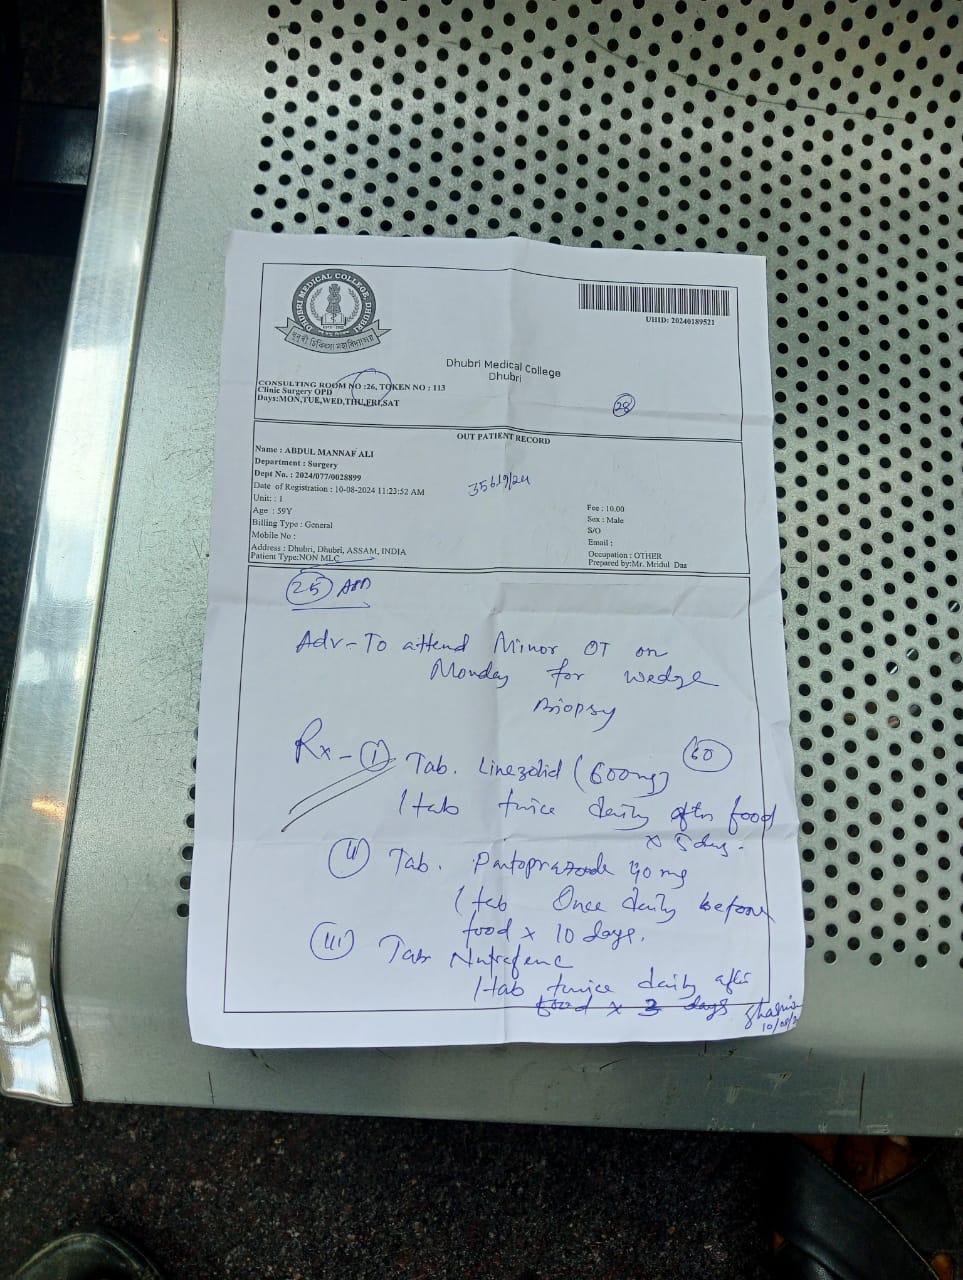 DHUBRI MEDICAL COLLEGE, DHUBRI
ধুবুৰী চিকিৎসা মহাবিদ্যালয়
UHID: 20240189521
Dhubri Medical College
Dhubri
CONSULTING ROOM NO :26, TOKEN NO : 113
Clinic Surgery OPD
Days:MON,TUE,WED,THU,FRI,SAT
28
OUT PATIENT RECORD
Name : ABDUL MANNAF ALI
Department : Surgery
Dept No. : 2024/077/0028899
Date of Registration : 10-08-2024 11:23:52 AM
Unit: : I
Age : 59Y
Billing Type : General
Mobile No :
Address : Dhubri, Dhubri, ASSAM, INDIA
Patient Type:NON MLC
35619/24
Fee : 10.00
Sex : Male
S/O
Email :
Occupation : OTHER
Prepared by:Mr. Mridul Das
25
Adv - To attend Minor OT on
Monday for wedge
Biopsy
60
Rx - I Tab. Linezolid (600mg)
1 tab twice daily after food
x 5 days.
II Tab. Pantoprazole 40 mg
1 tab Once daily before
food x 10 days.
III Tab
1 tab twice daily after
food x 3 days